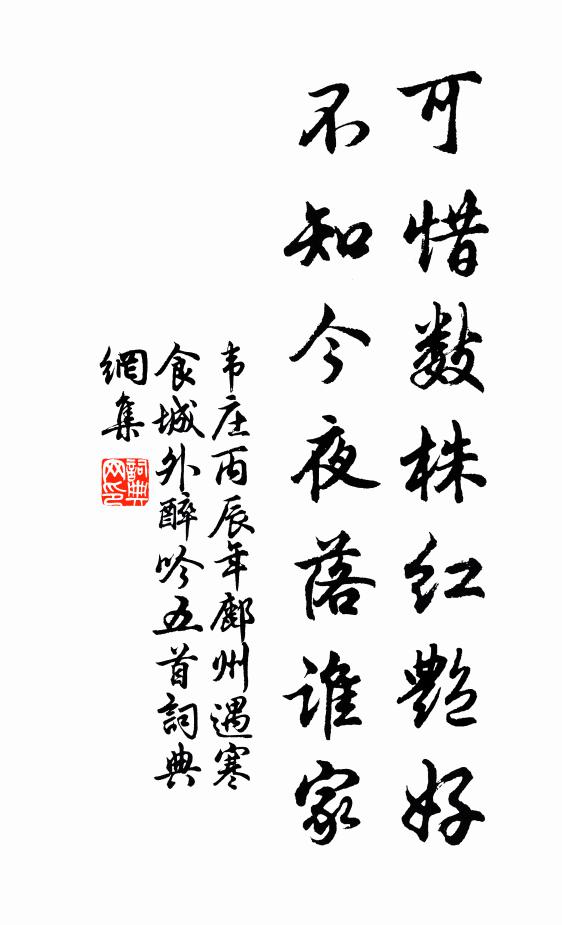 可惜数株红艷好
不知今夜落谁家
韦庄丙辰年鄜州遇寒
食城外醉吟五首詞典
網集
詞典网印